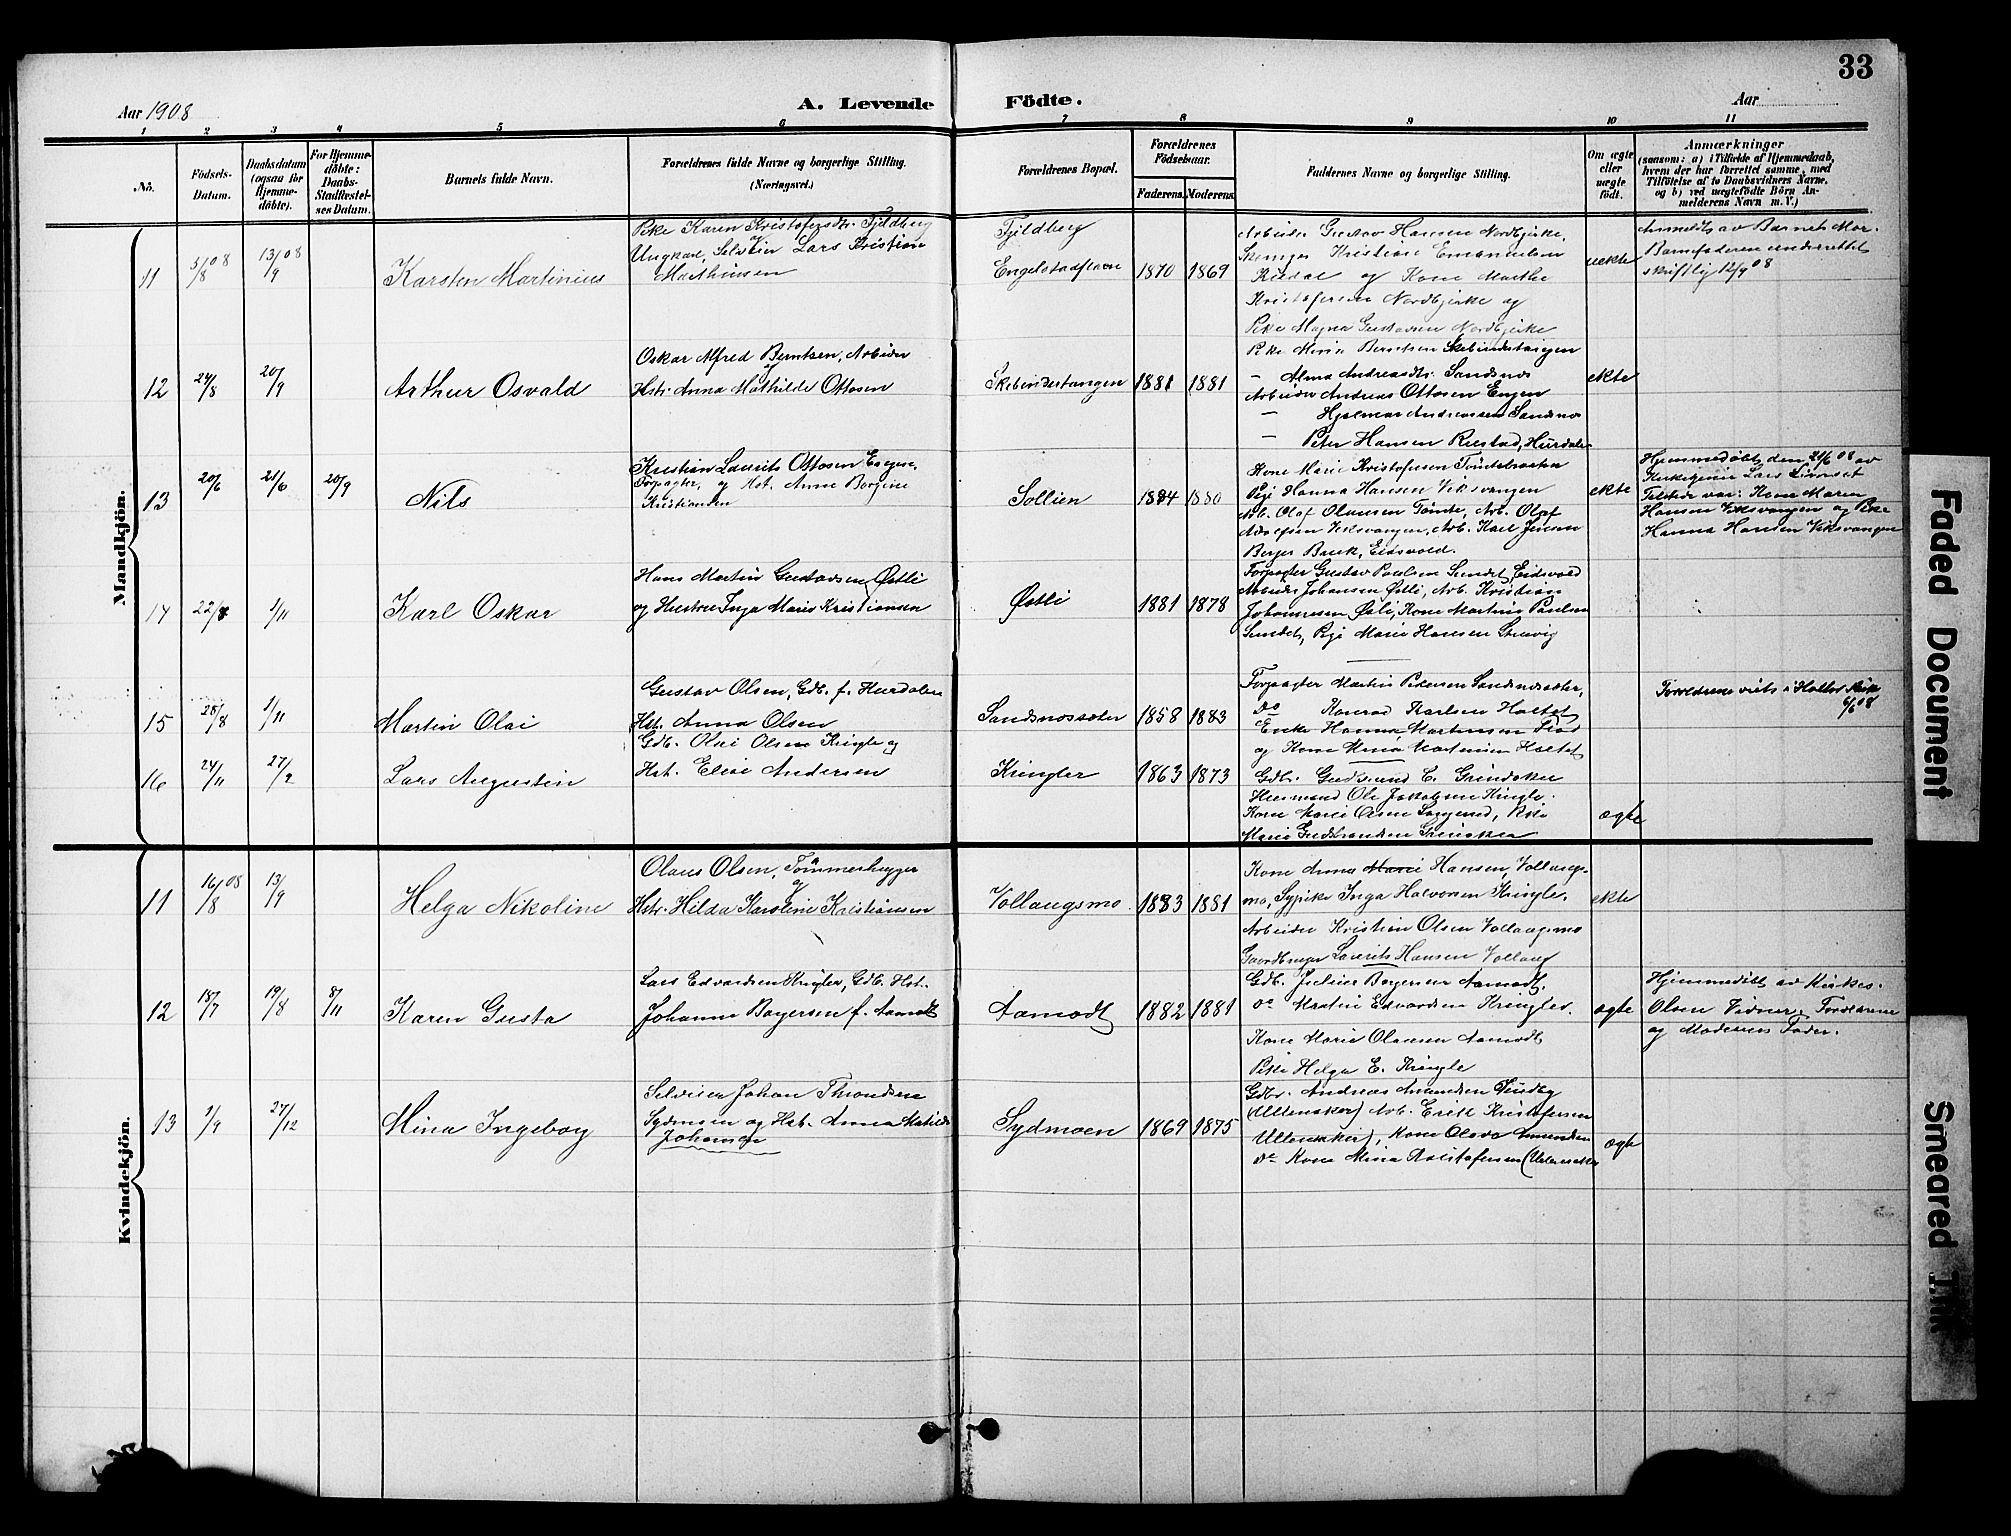 33
Aar 1908
A. Levende Födte.
Aar
1 2 3 4 5 6 7 8 9 10 11
No.
Födsels-Datum.
Daabsdatum (ogsaa for Hjemmedöbte).
For Hjemmedöbte: Daabs-Stadfæstelses Datum.
Barnets fulde Navn.
Forældrenes fulde Navne og borgerlige Stilling.
(Næringsvei.)
Forældrenes Bopæl.
Forældrenes Födselsaar.
Faderens. Moderens.
Faddernes Navne og borgerlige Stilling.
Om ægte eller uægte födt.
Anmærkninger
(saasom: a) i Tilfælde af Hjemmedaab, hvem der har forrettet samme, med Tilföielse af to Daabsvidners Navne, og b) ved uægtefödte Börn Anmelderens Navn m. V.)
Mandkjön.
11 5/8 08 13/9 08 Karsten Martinius
Pike Karen Kristofersdtr. Fjeldberg
Ungkar, Selveier Lars Kristian
Marthinsen
Fjeldberg
Engelstad
1870 1869
Arbeider Gustav Hansen Nordbjirke,
Kristian Emanuelsen
og Kone Marthe
Kristofersen Nordbjirke og
Pike Magna Gustavsen Nordbjirke
uekte
Anmeldt av Barnets Mor.
Barnefaderen underrettet
skriftlig 12/9 08
12 24/8 20/9 Arthur Osvald
Oskar Alfred Berntsen, Arbeider
og
Hstr. Anna Mathilde Ottosen
Skebinderstangen
1881 1881
Pike Mina Berntsen Skebinderstangen
- Alma Andreasdtr. Sandsnes
Arbeider Andreas Ottosen Engen
- Hjalmar Andreassen Sandsnes
- Peter Hansen Rustad, Hurdalen
ekte
13 20/6 21/6 20/9 Nils
Kristian Laurits Ottosen Engen,
Forpagter, og Hst. Anne Borgine
Kristiansen
Sollien
1884 1880
Kone Marie Kristofersen Tömtebraaten
Pige Hanna Hansen Viksvangen
Arb. Olaf Olausen Tömte, Arb. Olaf
Adolfsen Viksvangen, Arb. Karl Jensen
Berger Bruk, Eidsvold.
ekte
Hjemmedöbt den 21/6 08 av
Kirkesjener Lars
Tilstede var: Kone Maren
Hansen Viksvangen og Pike
Hanna Hansen Viksvangen
14 22/8 1/11 Karl Oskar
Hans Martin Gustavsen Østli
og Hustru Inga Marie Kristiansen
Østli
1881 1878
Forpagter Gustav Paulsen Sundet, Eidsvold
Arbeider Johansen Østli, Arb. Kristian
Johannesen Østli, Kone Martine Paulsen
Sundet, Pige Marie Hansen
15 28/8 1/11 Martin Olai
Gustav Olsen, Gdb. f. Hurdalen
Hst. Anna Olsen
Sandsnessæter
1858 1883
Forpagter Martin Pedersen Sandsnessæter,
do Konrad Karlsen Holtet
Enke Hanna Martinsen
og Kone Mina Martinsen Holtet
Forældrene viet i Holter Kirke
6/6 08
16 24/11 27/2 Lars Augustin
Gdb. Olai Olsen Kringler og
Hst. Elise Andersen
Kringler
1863 1873
Gdb. Gudbrand E. Grindaker
Husmand Ole Jakobsen Kringler.
Kone Marie Olsen, Pike
Marie Gudbrandsen Grindaker
ægte
Kvindekjön.
11 16/8 08 13/9 Helga Nikoline
Olaus Olsen, Tömmerhugger
og
Hstr. Hilda Karoline Kristiansen
Vollaugsmo
1883 1881
Kone Anna Marie Hansen, Vollaugs-
mo, Sypike Inga Halvorsen Kringler.
Arbeider Kristian Olsen Vollaugsmo
Gaardbruger Laurits Hansen Vollaug
ekte
12 18/7 19/8 8/11 Karen Gusta
Lars Edvardsen Kringler, Gdb. Hst.
Johanne Borgersen f. Aamodt
Aamodt
1882 1881
Gdb. Julius Borgersen Aamodt.
do Martin Edvardsen Kringler.
Kone Marie Olausen Aamodt
Pike Helga E. Kringler
ægte
Hjemmedöbt av Kirkes.
Olsen Vidner: Forældrene
og Moderens Fader.
13 1/9 27/12 Mina Ingeborg
Selveier Johan Throndsen
Sydmoen og Hst. Anna Matilde
Johansen
Sydmoen
1869 1875
Gdbr. Andreas Amundsen
(Ullensaker) Arb. Erik Kristofersen
Ullensaker), Kone Olava Amundsen
do Kone Mina Kristofersen (Ullensaker
ægte
Faded Document
Smeared Ink